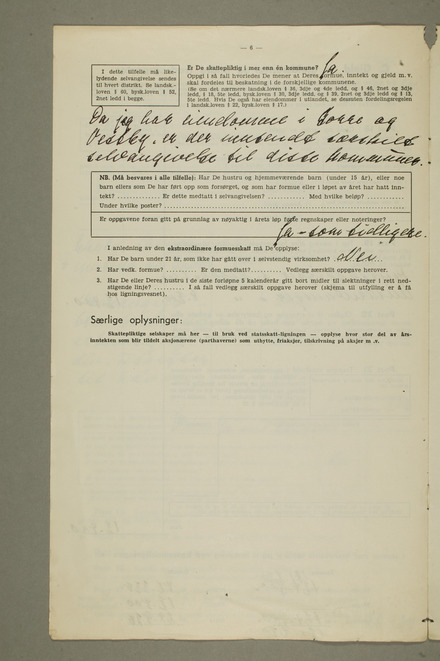 — 6 —
I dette tilfelle må like-
lydende selvangivelse sendes
til hvert distrikt. Se landsk.-
loven § 60, bysk.loven § 53,
2net ledd i begge.
Er De skattepliktig i mer enn én kommune? Ja.
Oppgi i så fall hvorledes De mener at Deres formue, inntekt og gjeld m. v.
skal fordeles til beskutning i de forskjellige kommunene.
Da jeg har eiendomme i Torre og
Vestby, er der innsendt særskilt
selvangivelse til disse kommuner.
NB. (Må besvares i alle tilfelle): Har De hustru og hjemmeværende barn (under 15 år), eller noe
barn ellers som De har ført opp som forsørget, og som har formue eller i løpet av året har hatt inn-
tekt? .......... Er dette medtatt i selvangivelsen? .......... Med hvilke beløp? ..........
Under hvilke poster? ..........
Er oppgavene foran gitt på grunnlag av nøyaktig i årets løp førte regnskaper eller noteringer?
Ja – som tidligere.
I anledning av den ekstraordinære formuesskatt må De opplyse:
1. Har De barn under 21 år, som ikke har gått over i selvstendig virksomhet? Nei
2. Har vedk. formue? .......... Er den medtatt? .......... Vedlegg særskilt oppgave herover.
3. Har De eller Deres hustru i de siste forløpne 5 kalenderår gitt bort midler til slektninger i rett ned-
stigende linje? .......... I så fall vedlegg særskilt oppgave herover (skjema til utfylling er å få
hos ligningsvesnet).
Særlige oplysninger:
Skattepliktige selskaper må her — til bruk ved statsskatt-ligningen — opplyse hvor stor del av års-
inntekten som blir tildelt aksjonærene (parthaverne) som utbytte, friaksjer, tilskrivning på aksjer m .v.